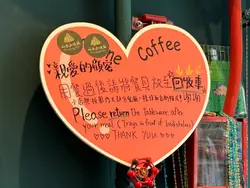 Coffee
親愛的顧客
用餐過後請將餐具放至回收車
謝謝
Please return the tableware after
your meal (Trays in front of bookshelves)
THANK YOU